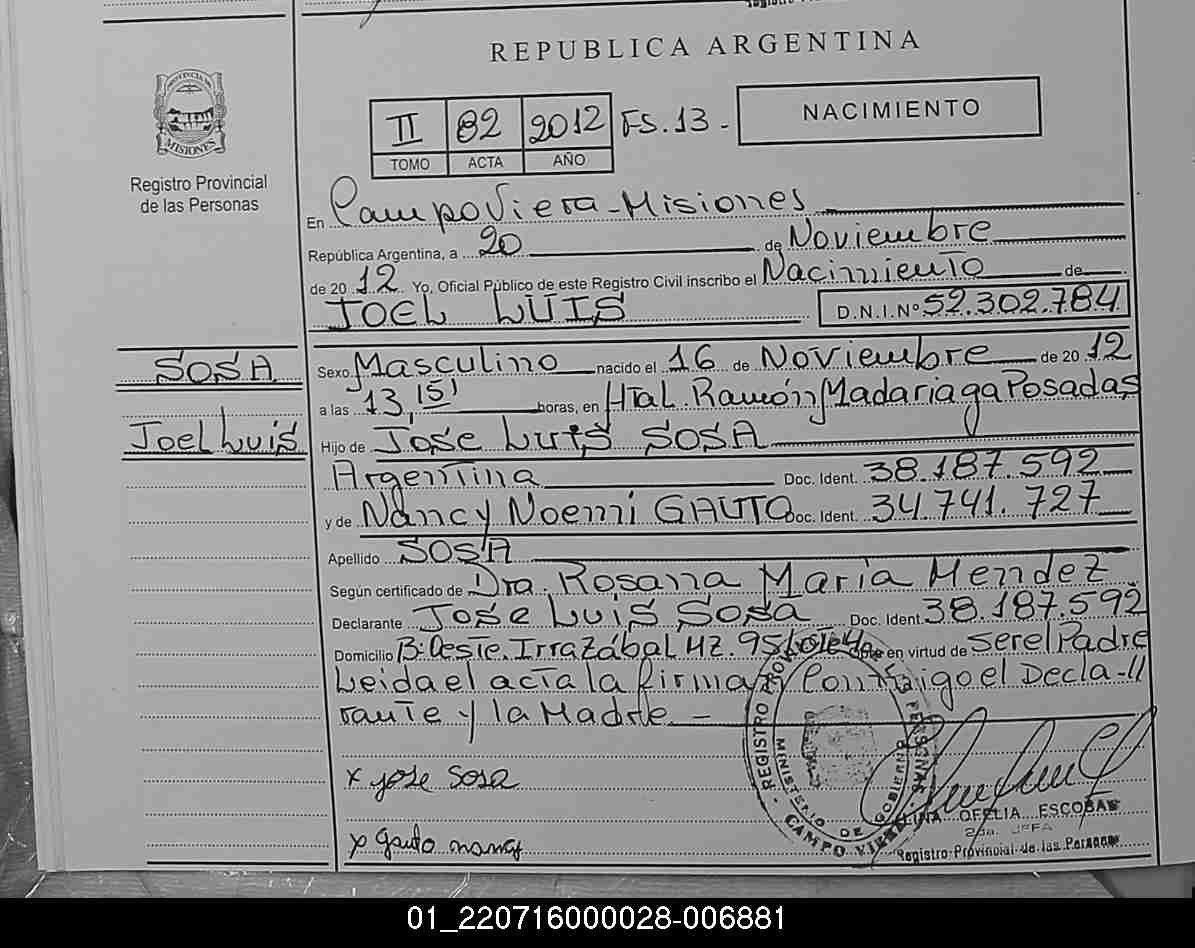 REPUBLICA ARGENTINA
PROVINCIA DE MISIONES
Registro Provincial
de las Personas
II 82 2012 FS.13.-
TOMO ACTA AÑO
NACIMIENTO
En Campo Viera - Misiones
República Argentina, a 20 de Noviembre
de 2012. Yo, Oficial Público de este Registro Civil inscribo el Nacimiento de
JOEL LUIS D.N.I.Nº 52.302.784
SOSA
Joel Luis
Sexo Masculino nacido el 16 de Noviembre de 2012
a las 13,15' horas, en Htal. Ramón Madariaga Posadas
Hijo de Jose Luis SOSA
Argentina Doc. Ident. 38.187.592
y de Nancy Noemi GAUTO Doc. Ident. 34.741.727
Apellido SOSA
Según certificado de Dra. Rosana María Mendez
Declarante Jose Luis Sosa Doc. Ident. 38.187.592
Domicilio B: Oeste. Irrazábal Mz. 95 Lote 4 en virtud de ser el Padre
Leida el acta la firman Conmigo el Decla-//
rante y la Madre.-
x jose sosa
x gauto nancy
REGISTRO PROVINCIAL DE LAS PERSONAS
MINISTERIO DE GOBIERNO
CAMPO VIERA
OFELIA ESCOBAR
2da. JEFA
Registro Provincial de las Personas
01_220716000028-006881